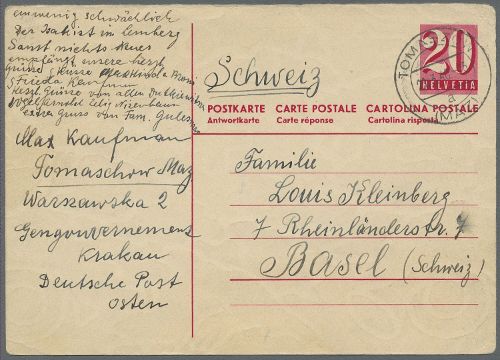 ein wenig schwächlich
Der Isak ist in Lemberg
Sonst nichts Neues
empfängt unsere herzl
Grüsse & Küsse
Frieda Kaufman
Herzl. Grüsse von allen
extra Gruss von Fam.
Max Kaufman
Tomaschow Maz
Warszawska 2
Gengouvernement
Krakau
Deutsche Post
Osten
Schweiz
POSTKARTE CARTE POSTALE CARTOLINA POSTALE
Antwortkarte Carte réponse Cartolina risposta
20
HELVETIA
TOMASCHOW
(MAZ)
Familie
Louis Kleinberg
7 Rheinländerstr. 7
Basel (Schweiz)